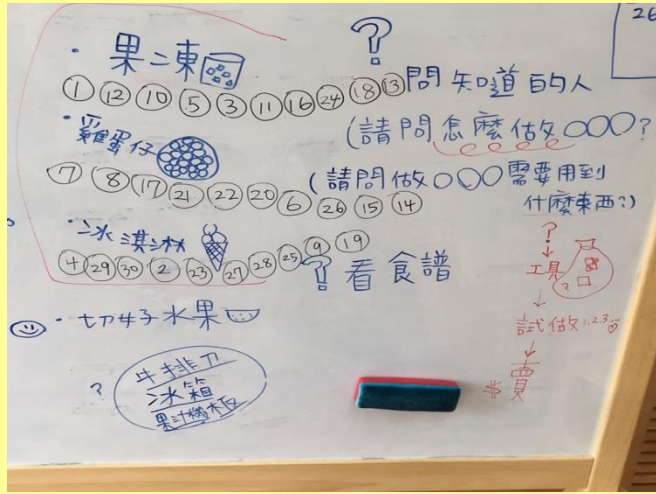 26
?
· 果凍
① ⑫ ⑩ ⑤ ③ ⑪ ⑯ ㉔ ⑱ ⑬
問知道的人
(請問怎麼做○○○?
· 雞蛋仔
⑦ ⑧ ⑰ ㉑ ㉒ ⑳ ⑥ ㉖ ⑮ ⑭
(請問做○○○需要用到
什麼東西?)
· 冰淇淋
④ ㉙ ㉚ ② ㉓ ㉗ ㉘ ㉕ ⑨ ⑲
? 看食譜
?
↓
工具
?
↓
試做1.2.3
↓
⇒ 賣
· 切好水果
?
牛排刀
冰箱
果汁機